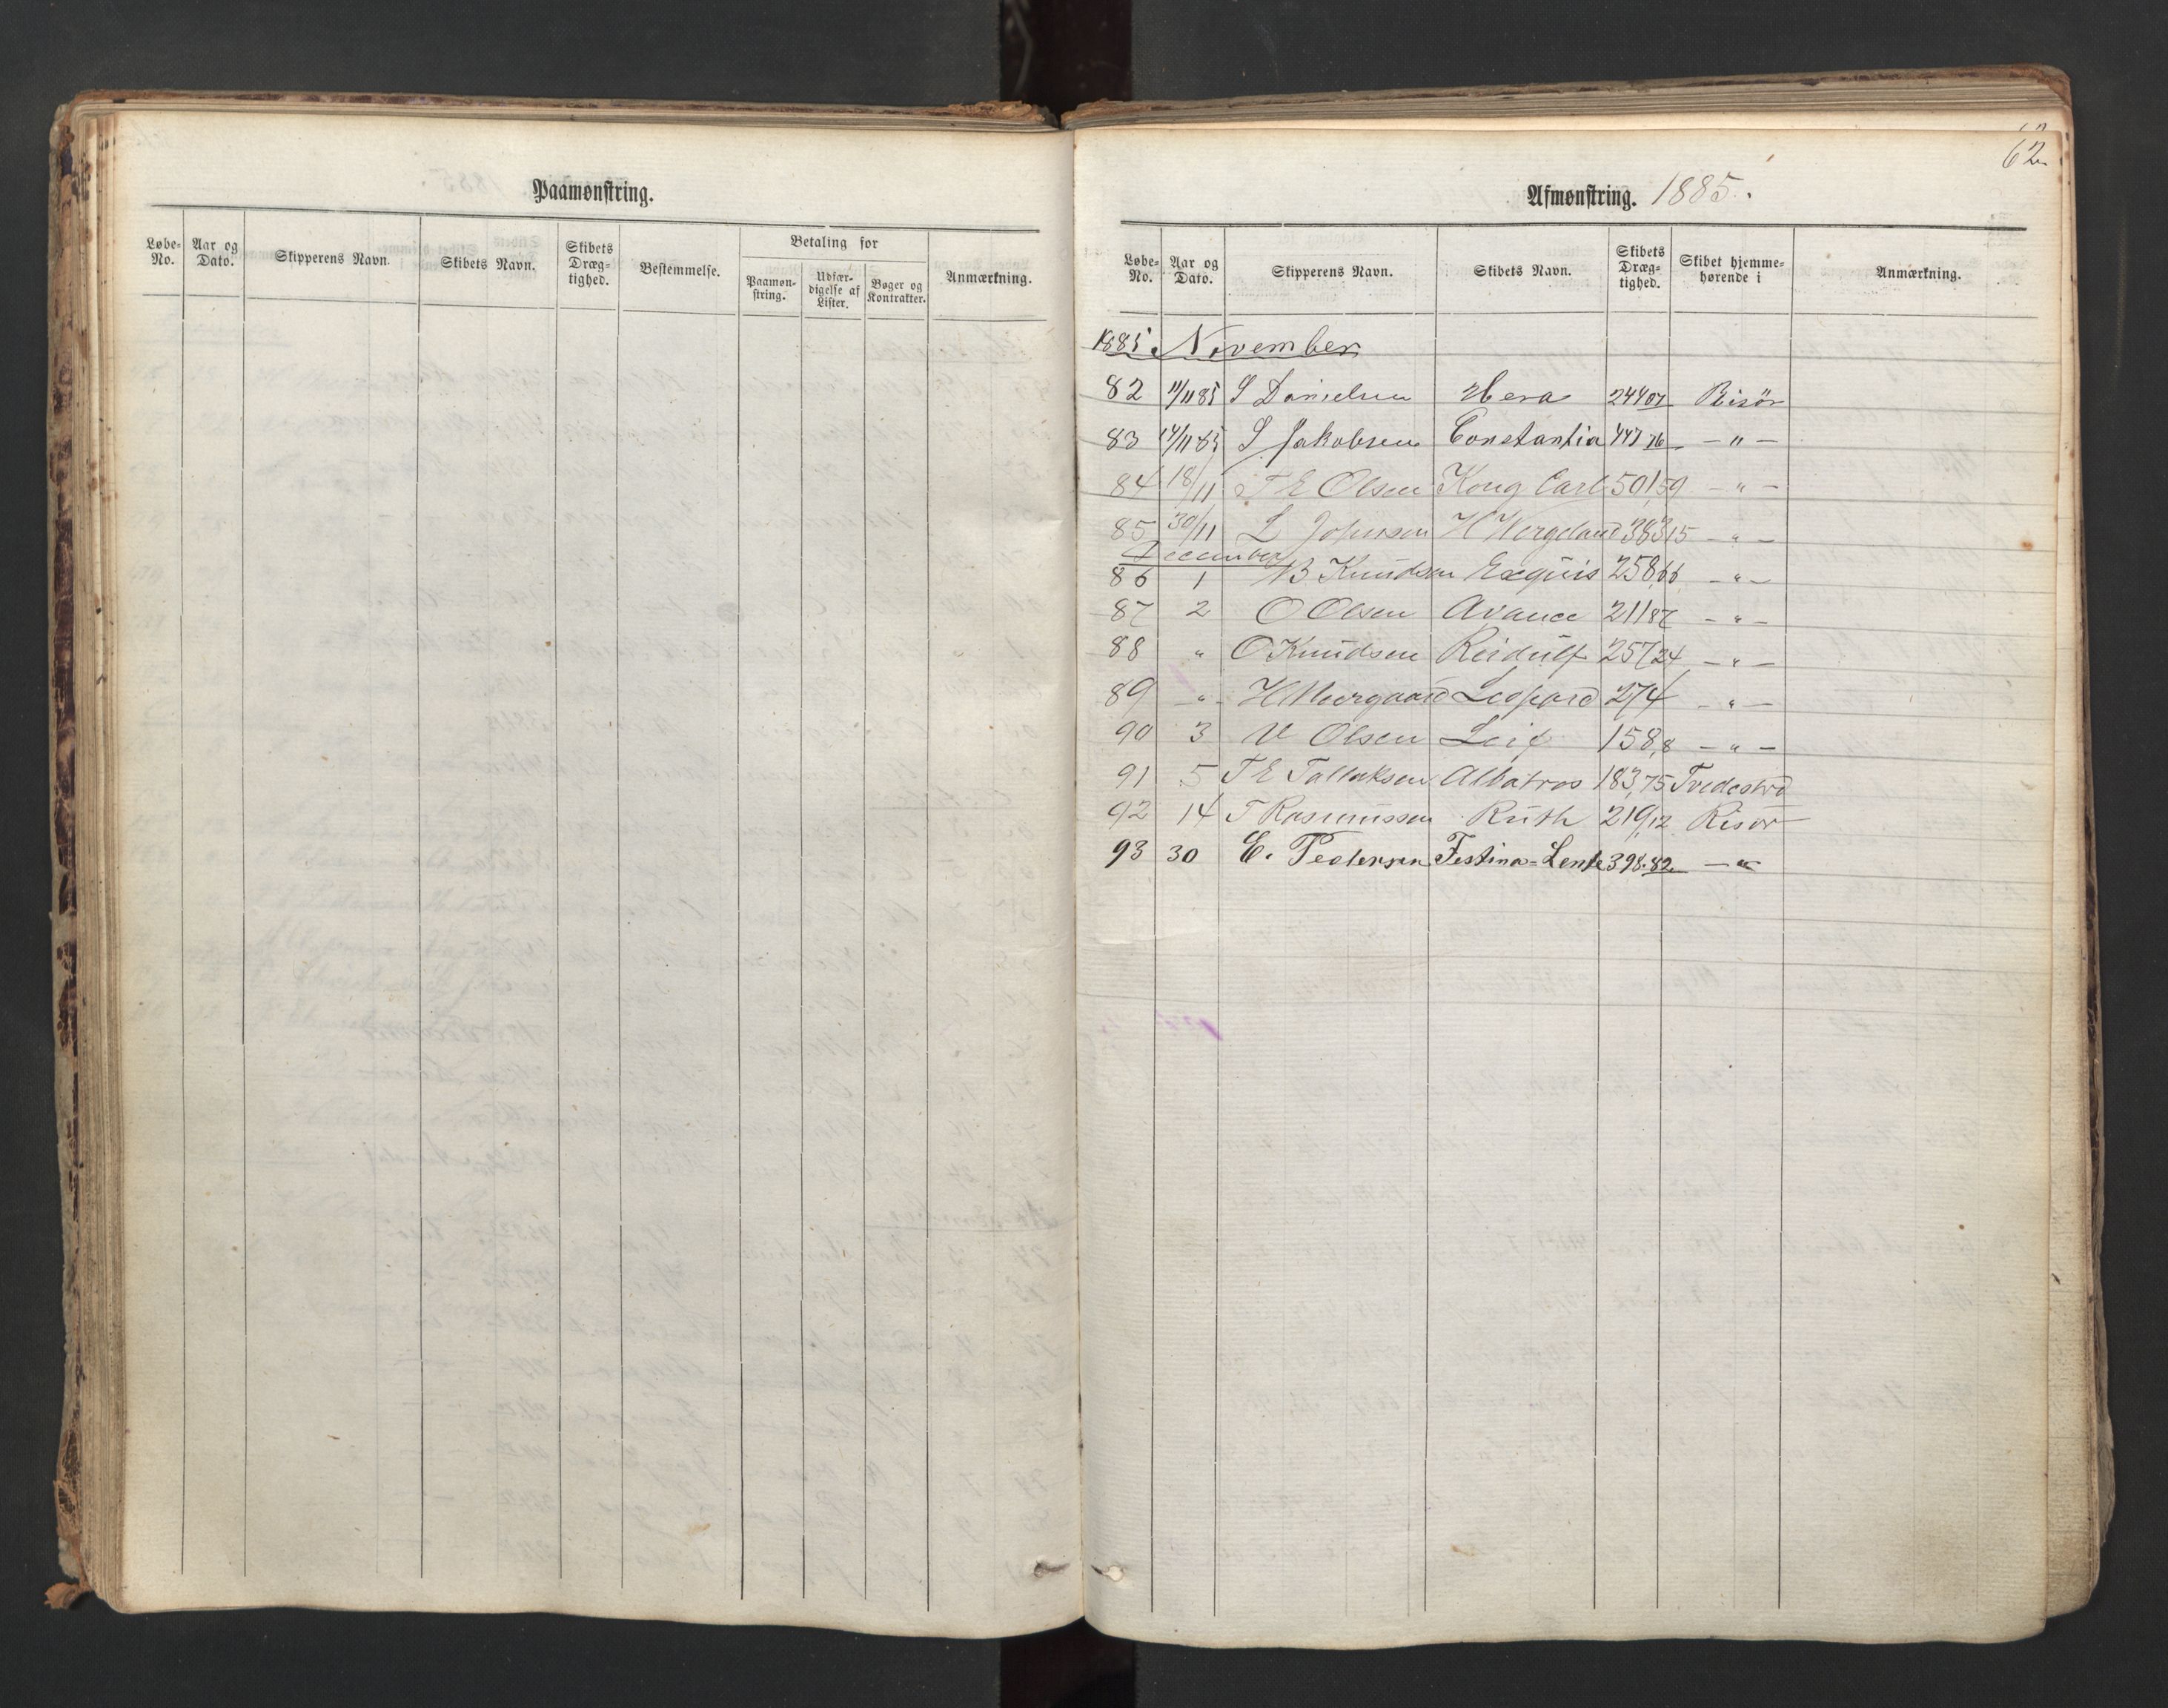 Paamønstring.
Løbe-No. Aar og Dato. Skipperens Navn. Skibets Navn. Skibets Dræg-tighed. Bestemmelse. Betaling for Paamøn-string. Udfær-digelse af Lister. Bøger og Kontrakter. Anmærkning.
62
Afmønstring. 1885.
Løbe-No. Aar og Dato. Skipperens Navn. Skibets Navn. Skibets Dræg-tighed. Skibet hjemme-hørende i Anmærkning.
1885 November
82 11/11 85 S Danielsen Hera 244 07 Risör
83 14/11 85 S Jakobsen Constantia 447 76 — " —
84 18/11 T E Olsen Kong Carl 501,59 — " —
85 30/11 L Johnsen H Wergeland 383 15 — " —
December
86 1 B Knudsen Exquis 258,66 — " —
87 2 O Olsen Avance 211 87 — " —
88 " O Knudsen Reidulf 257,24 — " —
89 - " - H Moergaard Leopard 274 — " —
90 3 Olsen Leif 158,8 — " —
91 5 T E Tallaksen Albatros 183,75 Tvedestrd
92 14 T Rasmussen Ruth 219,12 Risör
93 30 E. Pedersen Festina=Lente 398.82 — " —